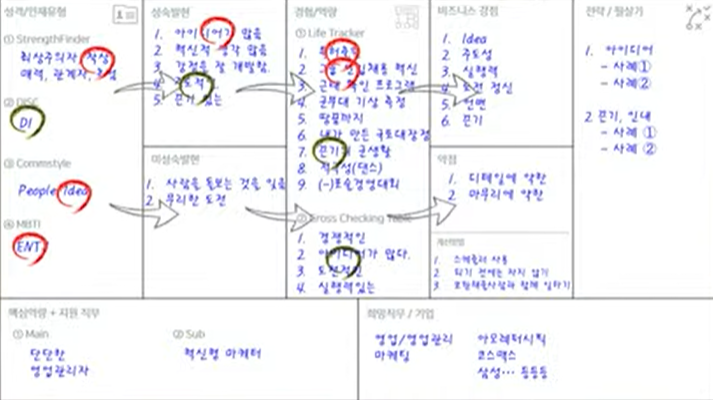 성격/인재유형
① StrengthFinder
최상주의자, 착상
매력, 관계자,
② DISC
DI
③ Commstyle
People Idea
④ MBTI
ENT
성숙발현
1. 아이디어가 많음
2. 혁신적 생각 많음
3. 강점을 잘 개발함.
4.
5. 끈기 있는
미성숙발현
1. 사람을 돌보는 것을 잊음
2. 무리한 도전
경험/역량
① Life Tracker
1.
2. 혁신
3. 군대 프로그램
4. 군부대 기상 측정
5. 땅끝까지
6. 내가 만든 국토대장정
7. 끈기의 군생활
8. 적극성(댄스)
9. (-)모술경영대회
② Cross Checking Table
1. 경쟁적인
2. 아이디어가 많다.
3. 도전적인
4. 실행력있는
비즈니스 강점
1. Idea
2. 주도성
3. 실행력
4. 도전 정신
5. 언변
6. 끈기
약점
1. 디테일에 약한
2. 마무리에 약한
개선방법
1. 스케쥴러 사용
2. 되기 전에는 자지 않기
3. 함께 일하기
전략 / 필살기
1. 아이디어
- 사례①
- 사례②
2. 끈기, 인내
- 사례 ①
- 사례 ②
핵심역량 + 지원 직무
① Main
단단한
영업관리자
② Sub
혁신형 마케터
희망직무 / 기업
영업/영업관리
마케팅
아모레퍼시픽
코스맥스
삼성… 등등등